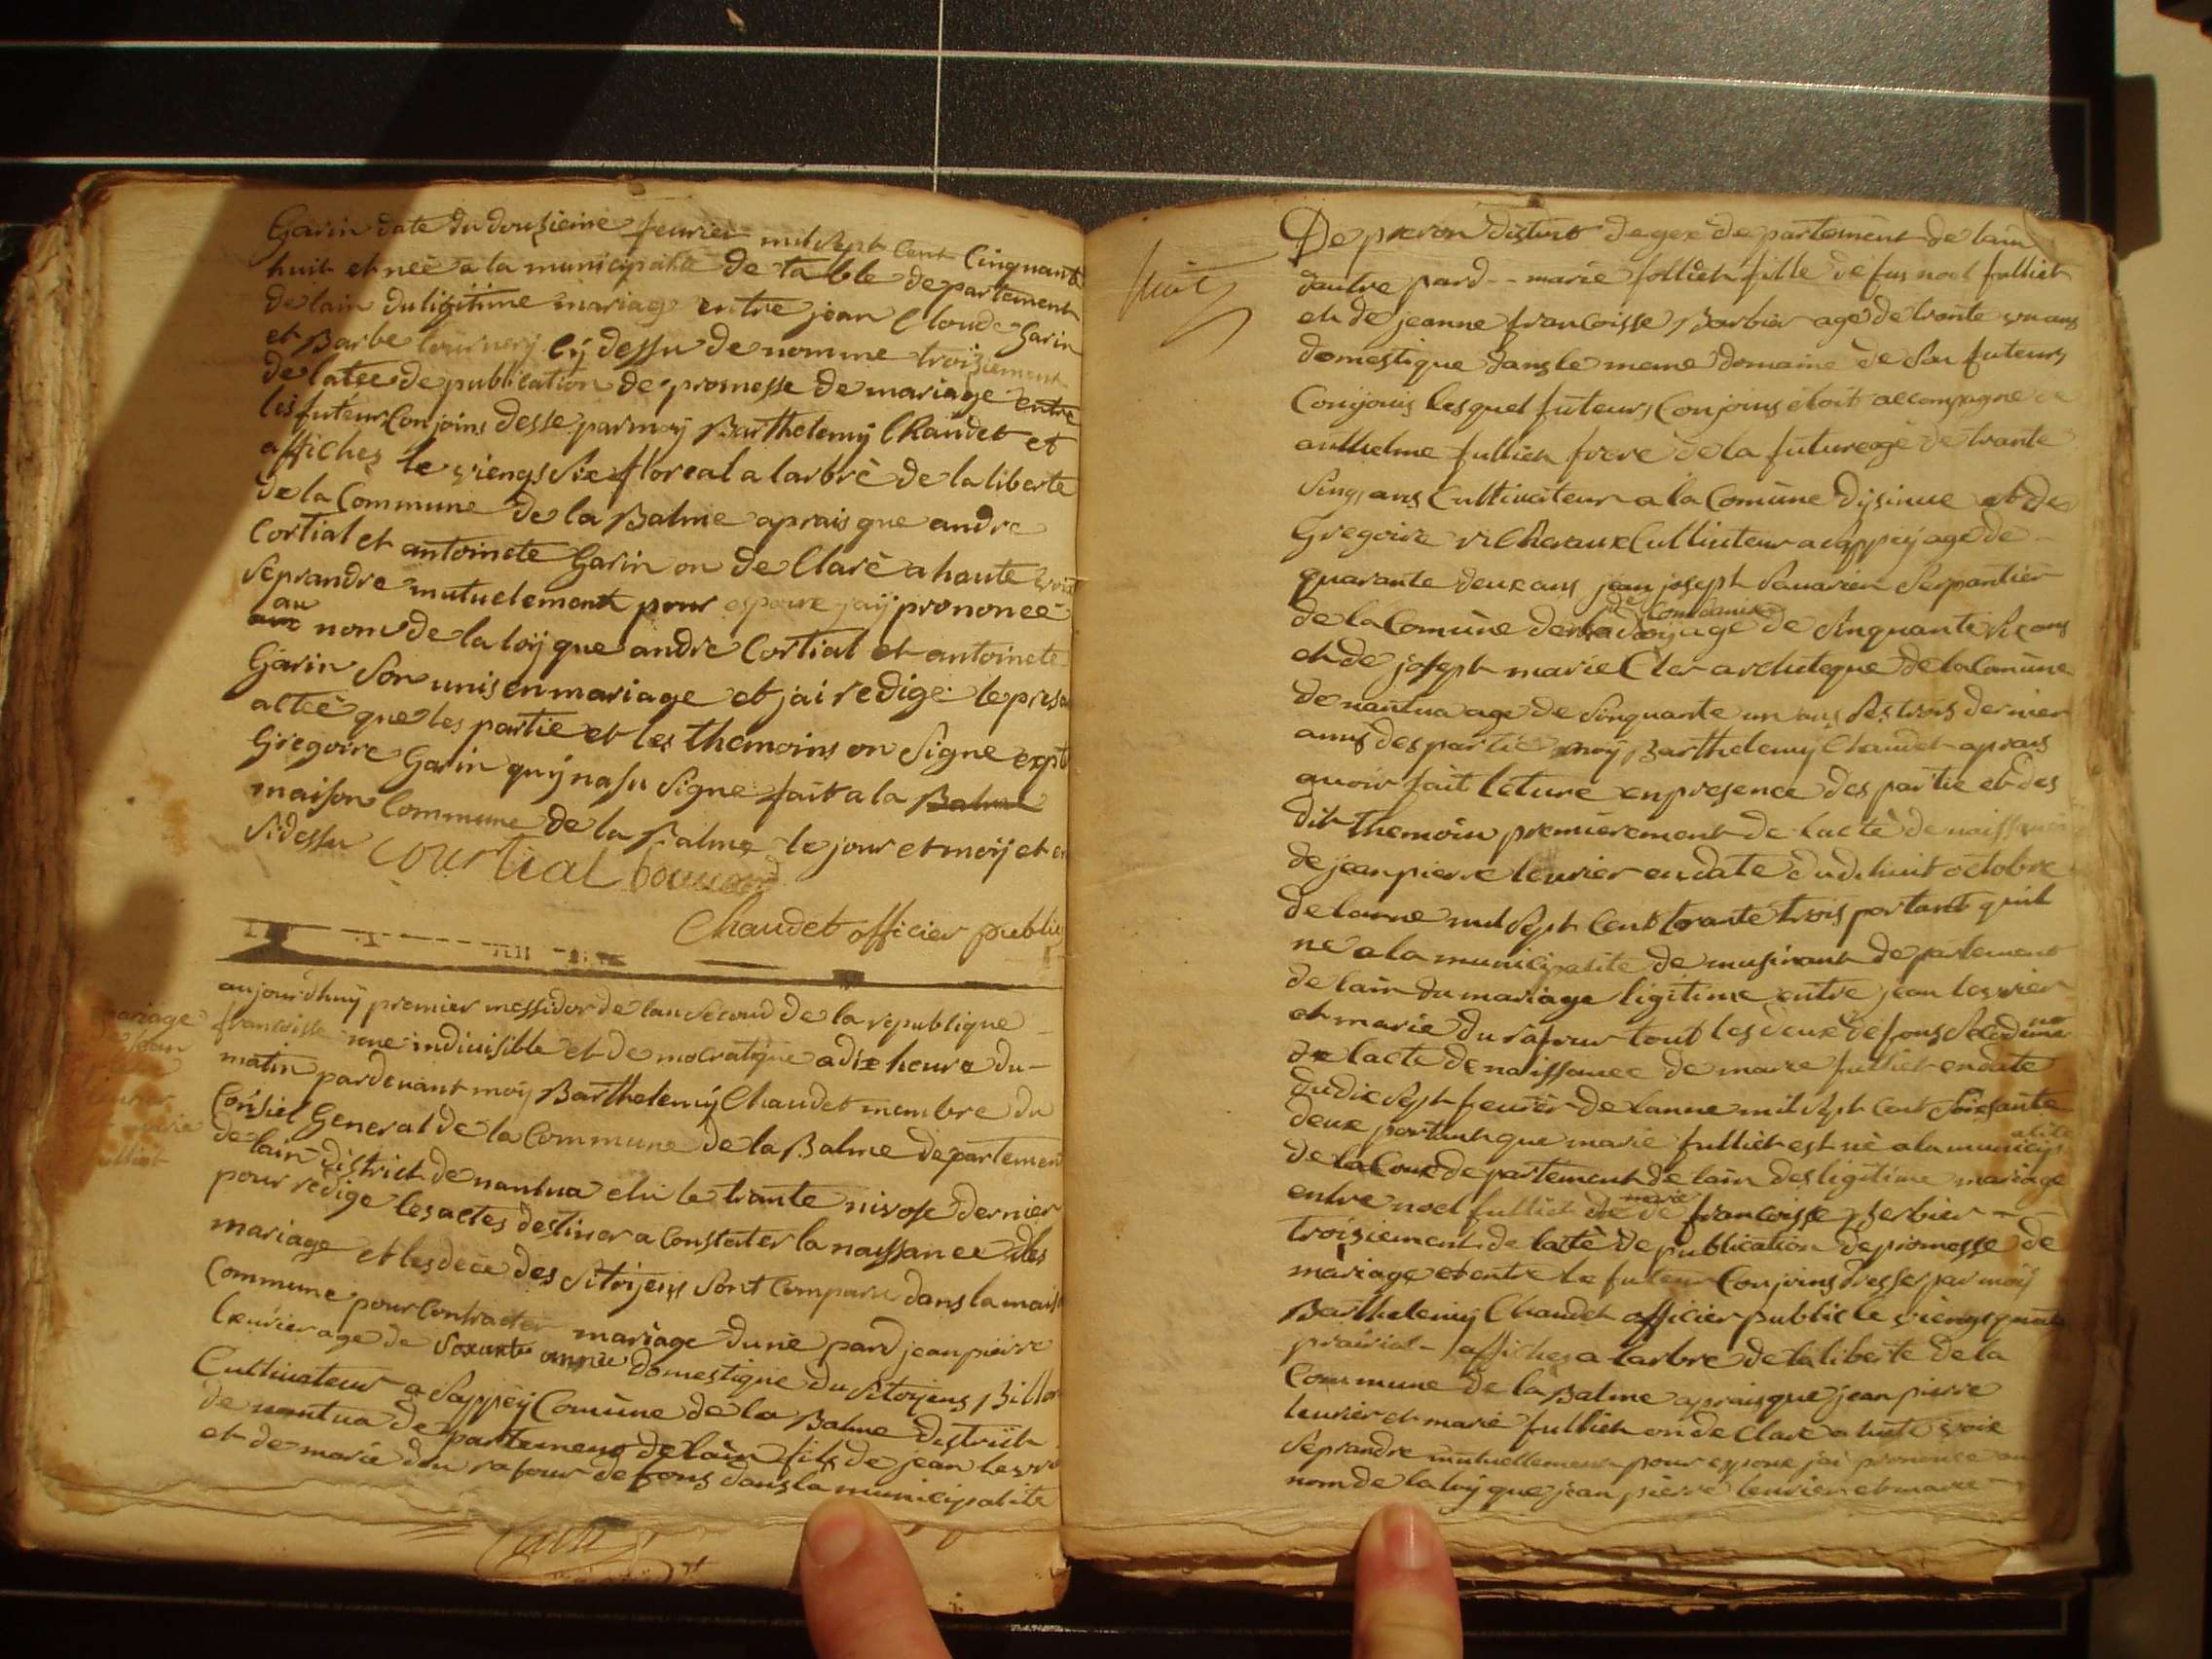 Garin date du dousieme fevrier mil sept cent cinquante
huit et nèe a la municipalité de table departement
de lain du ligitime mariage entre jean Claude Garin
et Barbe tournery cÿ dessu denomme troisiement
de latee de publication de promesse de mariage entre
les futeur Conjoins desse par moÿ Barthelemÿ Chaudet et
affichez le viengs six floreal a larbrè de la liberte
de la Commune de la Balme aprais que andre
Cortial et antoinete Garin on de Clarè a haute voix
se prandre mutuelement pour espoux jaÿ prononcé
au
nom de la loÿ que andre Cortial et antoinete
Garin son unis en mariage et jai redige le presa
acteè que les partie et les themoins on signe expt
Gregoire Garin quÿ na su signe fait a la Balme
maison Commune de la Balme le jour et moÿ et en
sidessu Courtial
Chaudet officier public
aujourdhuÿ premier messidor de lan second de la republique
francoisse une indivisible et de mocratique a dix heure du
matin pardevant moÿ Barthelemÿ Chaudet membre du
Consiel General de la Commune de la Balme departement
de lain district de nantua elu le trante nivose dernier
pour redige les actes destiner a Constater la naissance des
mariage et les decé des sitoÿens sont comparu dans la mais
Commune pour Contracter mariage dune pard jean pierre
levrier age de domestique du sitoyens Billo
Cultivateur a Sappeÿ Comùne de la Balme distrit
de nantua departement de lain fils de jean levri
et de marie du rafour defons dans la municipalite
mariage
suite
De peron distrit de gex departement de lain
dautre pard -- marie folliet fille de fus noel fulliet
et de jeanne francoisse Barbier age de trante un ans
domestique dans le meme domaine de son futeurs
Conjouis lesquel futeurs Conjoins etoit accompagne de
anthelme fulliet frere de la future age de trante
sinq ans Cultivateur a la Comùne et de
Gregoire Cultivateur a Sappeÿ age de
quarante deux ans jean joseph savarien serpantier
de la Comùne de age de sinquante six ans
et de joseph marie Cler architeque de la Comùne
de nantua age de sinquante un ans ses trois dernier
amis des partie moÿ Barthelemÿ Chaudet aprais
avoir fait leture en presence des partie et des
dit themoin premierement de lactè de naissance
de jean pierre levrier en date du dihuit octobre
de lanne mil sept cent trante trois portant quil
né a la municipalite de musinant departement
de lain du mariage ligitime entre jean levrier
et marie du rafour tout les deux defons
de lacte de naissance de marie fulliet en date
du dix sept fevrier de lanne mil sept cent soixsante
deux portant que marie fulliet est nè a la municipalite
de la Coux departement de lain des ligitime mariage
entre noel fulliet de marie francoisse Berbier
troisiement de lactè de publication de promesse de
mariage et entre le futeur Conjoins dresse par moÿ
Barthelemÿ Chaudet officier public le viengs quatre
prairial affichez a larbre de la liberte de la
Commune de la Balme aprais que jean pierre
levrier et marie fulliet on de Clare a hute voix
se prandre mutuellement pour espoux jai prononce au
nom de la loÿ que jean pierre levrier et marie